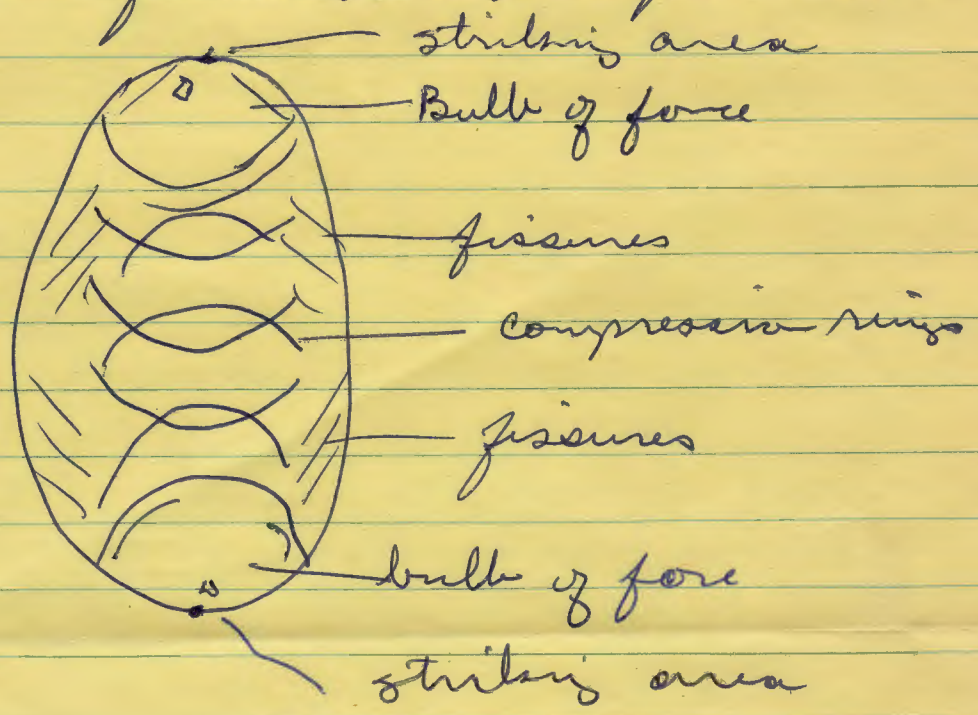 striking area
Bulb of force
fissures
compression rings
fissures
bulb of force
striking area